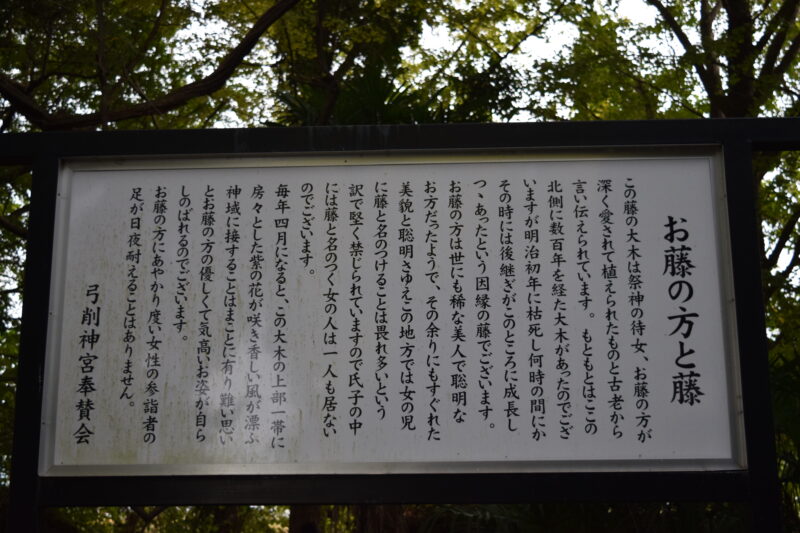 お藤の方と藤
この藤の大木は祭神の待女、お藤の方が
深く愛されて植えられたものと古老から
言い伝えられています。もともとはここの
北側に数百年を経た大木があったのでござ
いますが明治初年に枯死し何時の間にか
その時には後継ぎがこのところに成長し
つゝあったという因縁の藤でございます。
お藤の方は世にも稀な美人で聡明な
お方だったようで、その余りにもすぐれた
美貌と聡明さゆえこの地方では女の児
に藤と名のつけることは畏れ多いという
訳で堅く禁じられていますので氏子の中
には藤と名のつく女の人は一人も居ない
のでございます。
毎年四月になると、この大木の上部一帯に
房々とした紫の花が咲き香しい風が漂ふ
神域に接することはまことに有り難い思い
とお藤の方の優しくて気高いお姿が自ら
しのばれるのでございます。
お藤の方にあやかり度い女性の参詣者の
足が日夜耐えることはありません。
弓削神宮奉賛会